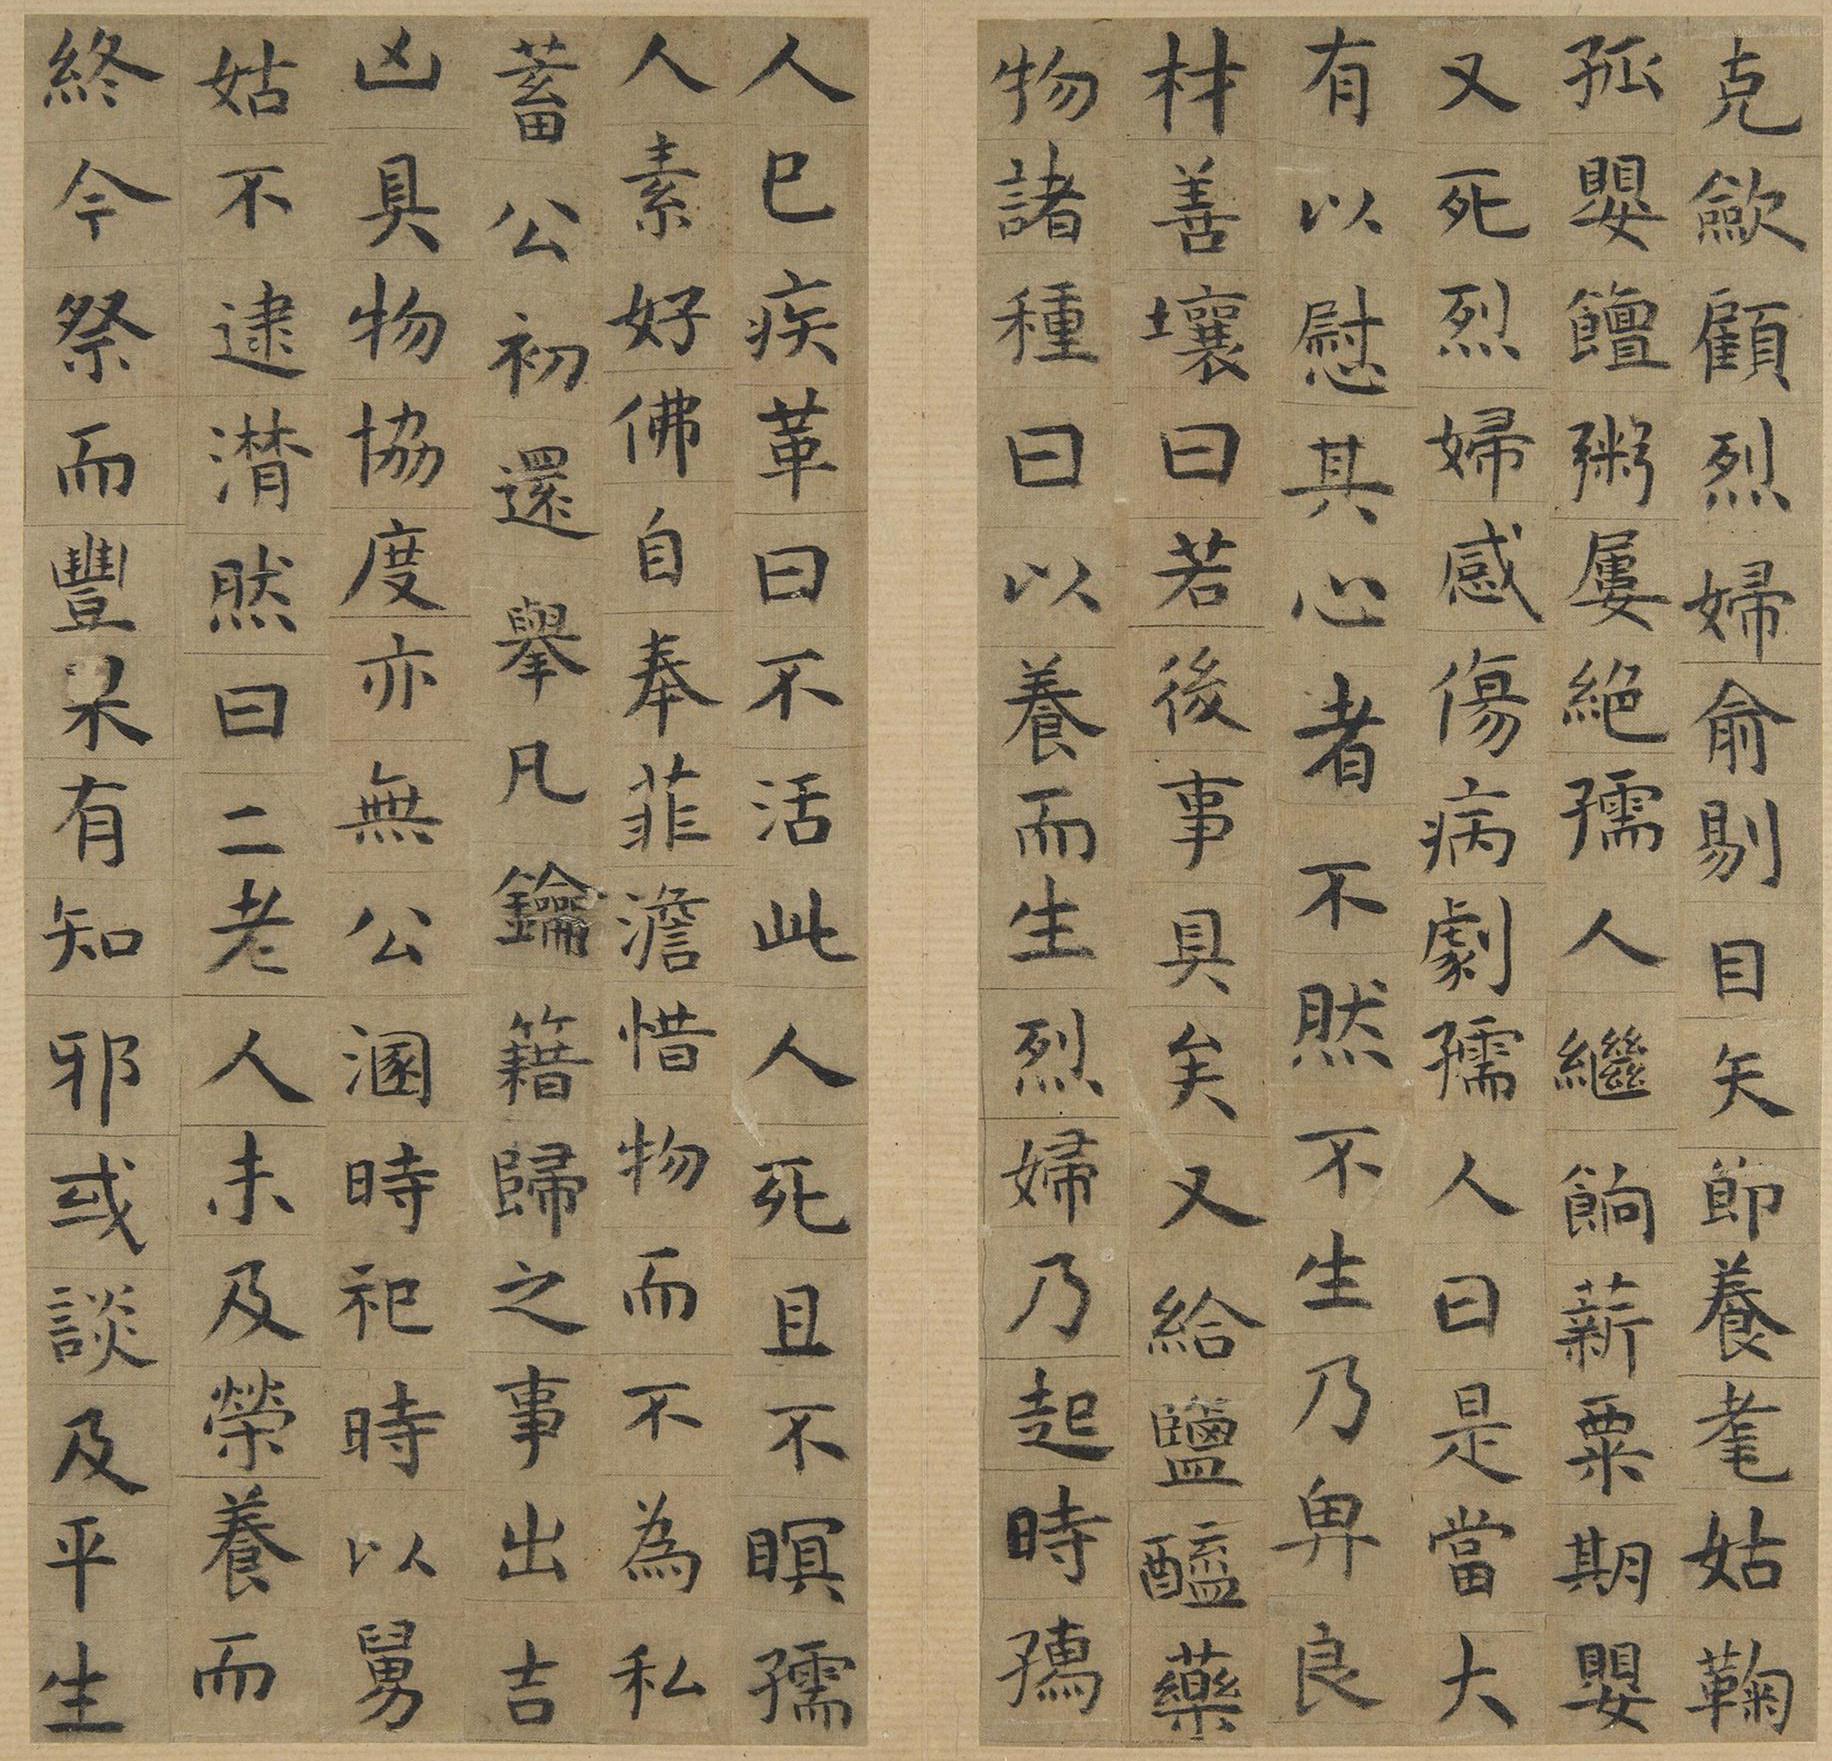 克歛顧烈婦俞剔目矢節養耄姑鞠
孤嬰饘粥屢絕孺人繼餉薪粟期嬰
又死烈婦感傷病劇孺人曰是當大
有以慰其心者不然不生乃畀良
材善壤曰若後事具矣又給鹽醯藥
物諸種曰以養而生烈婦乃起時孺
人已疾革曰不活此人死且不瞑孺
人素好佛自奉菲澹惜物而不為私
蓄公初還舉凡鑰籍歸之事出吉
凶具物協度亦無公溷時祀時以舅
姑不逮潸然曰二老人未及榮養而
終今祭而豐未有知邪或談及平生